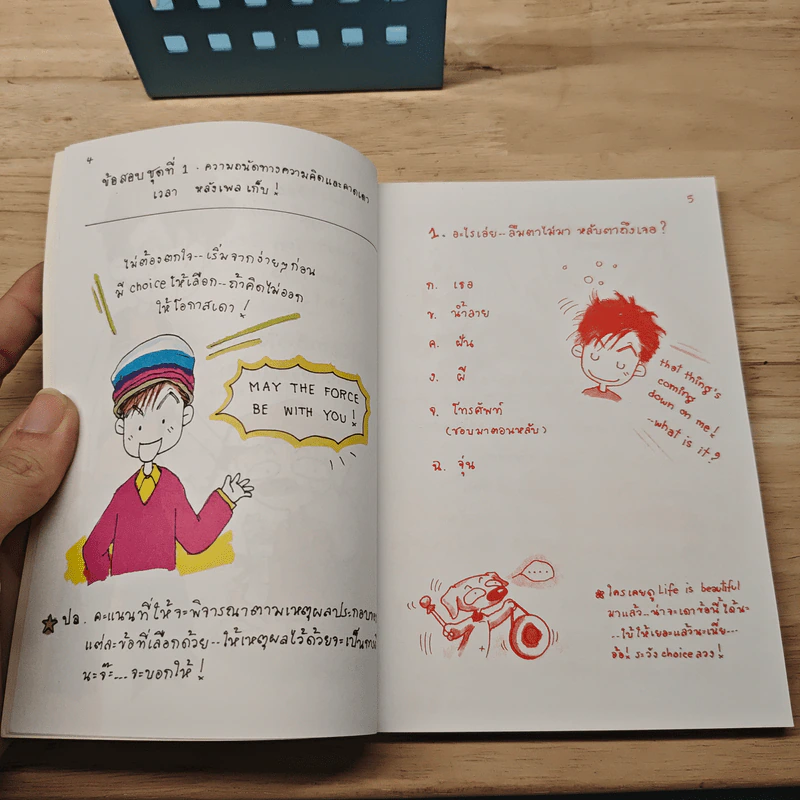 4
ข้อสอบชุดที่ 1 - ความถนัดทางความคิดและคาดเดา
เวลา หลังเพล เก็บ!
ไม่ต้องตกใจ--เริ่มจากง่ายๆก่อน
มี choice ให้เลือก--ถ้าคิดไม่ออก
ให้โอกาสเดา!
MAY THE FORCE
BE WITH YOU!
ปล. คะแนนที่ให้จะพิจารณาตามเหตุผลประกอบ
แต่ละข้อที่เลือกด้วย--ให้เหตุผลไว้ด้วยจะเป็น
นะจ๊ะ...จะบอกให้!
5
1. อะไรเอ่ย--ลืมตาไม่มา หลับตาถึงเจอ?
ก. เธอ
ข. น้ำลาย
ค. ฝัน
ง. ผี
จ. โทรศัพท์
(ชอบมาตอนหลับ)
ฉ. จุ่น
that thing's
coming
down on me!
...what is it?
....
ใครเคยดู Life is beautiful
มาแล้ว...น่าจะเดาข้อนี้ได้นะ
..ใบ้ให้เยอะแล้วนะเนี่ย...
อ้อ! ระวัง choice ลวง!